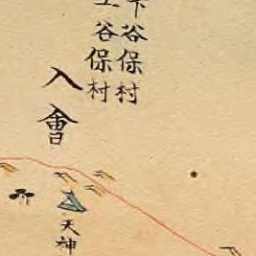 下谷保村
上谷保村
入會
天神